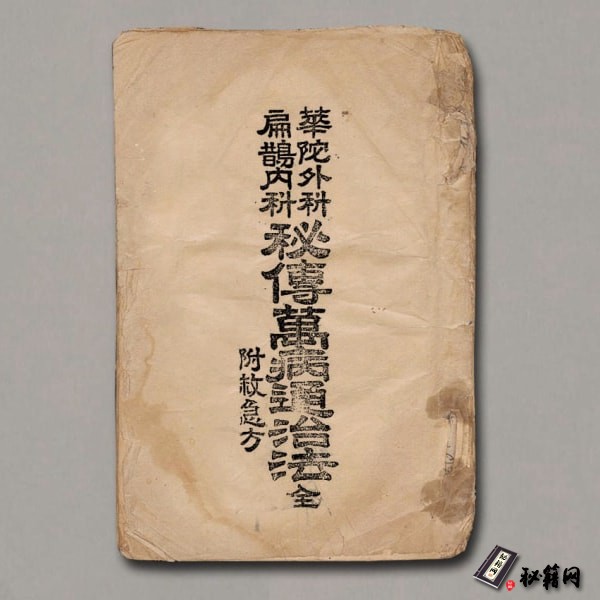 華陀外科
扁鵲内科
秘傳萬病通治法全
附救急方
秘籍网
秘籍网